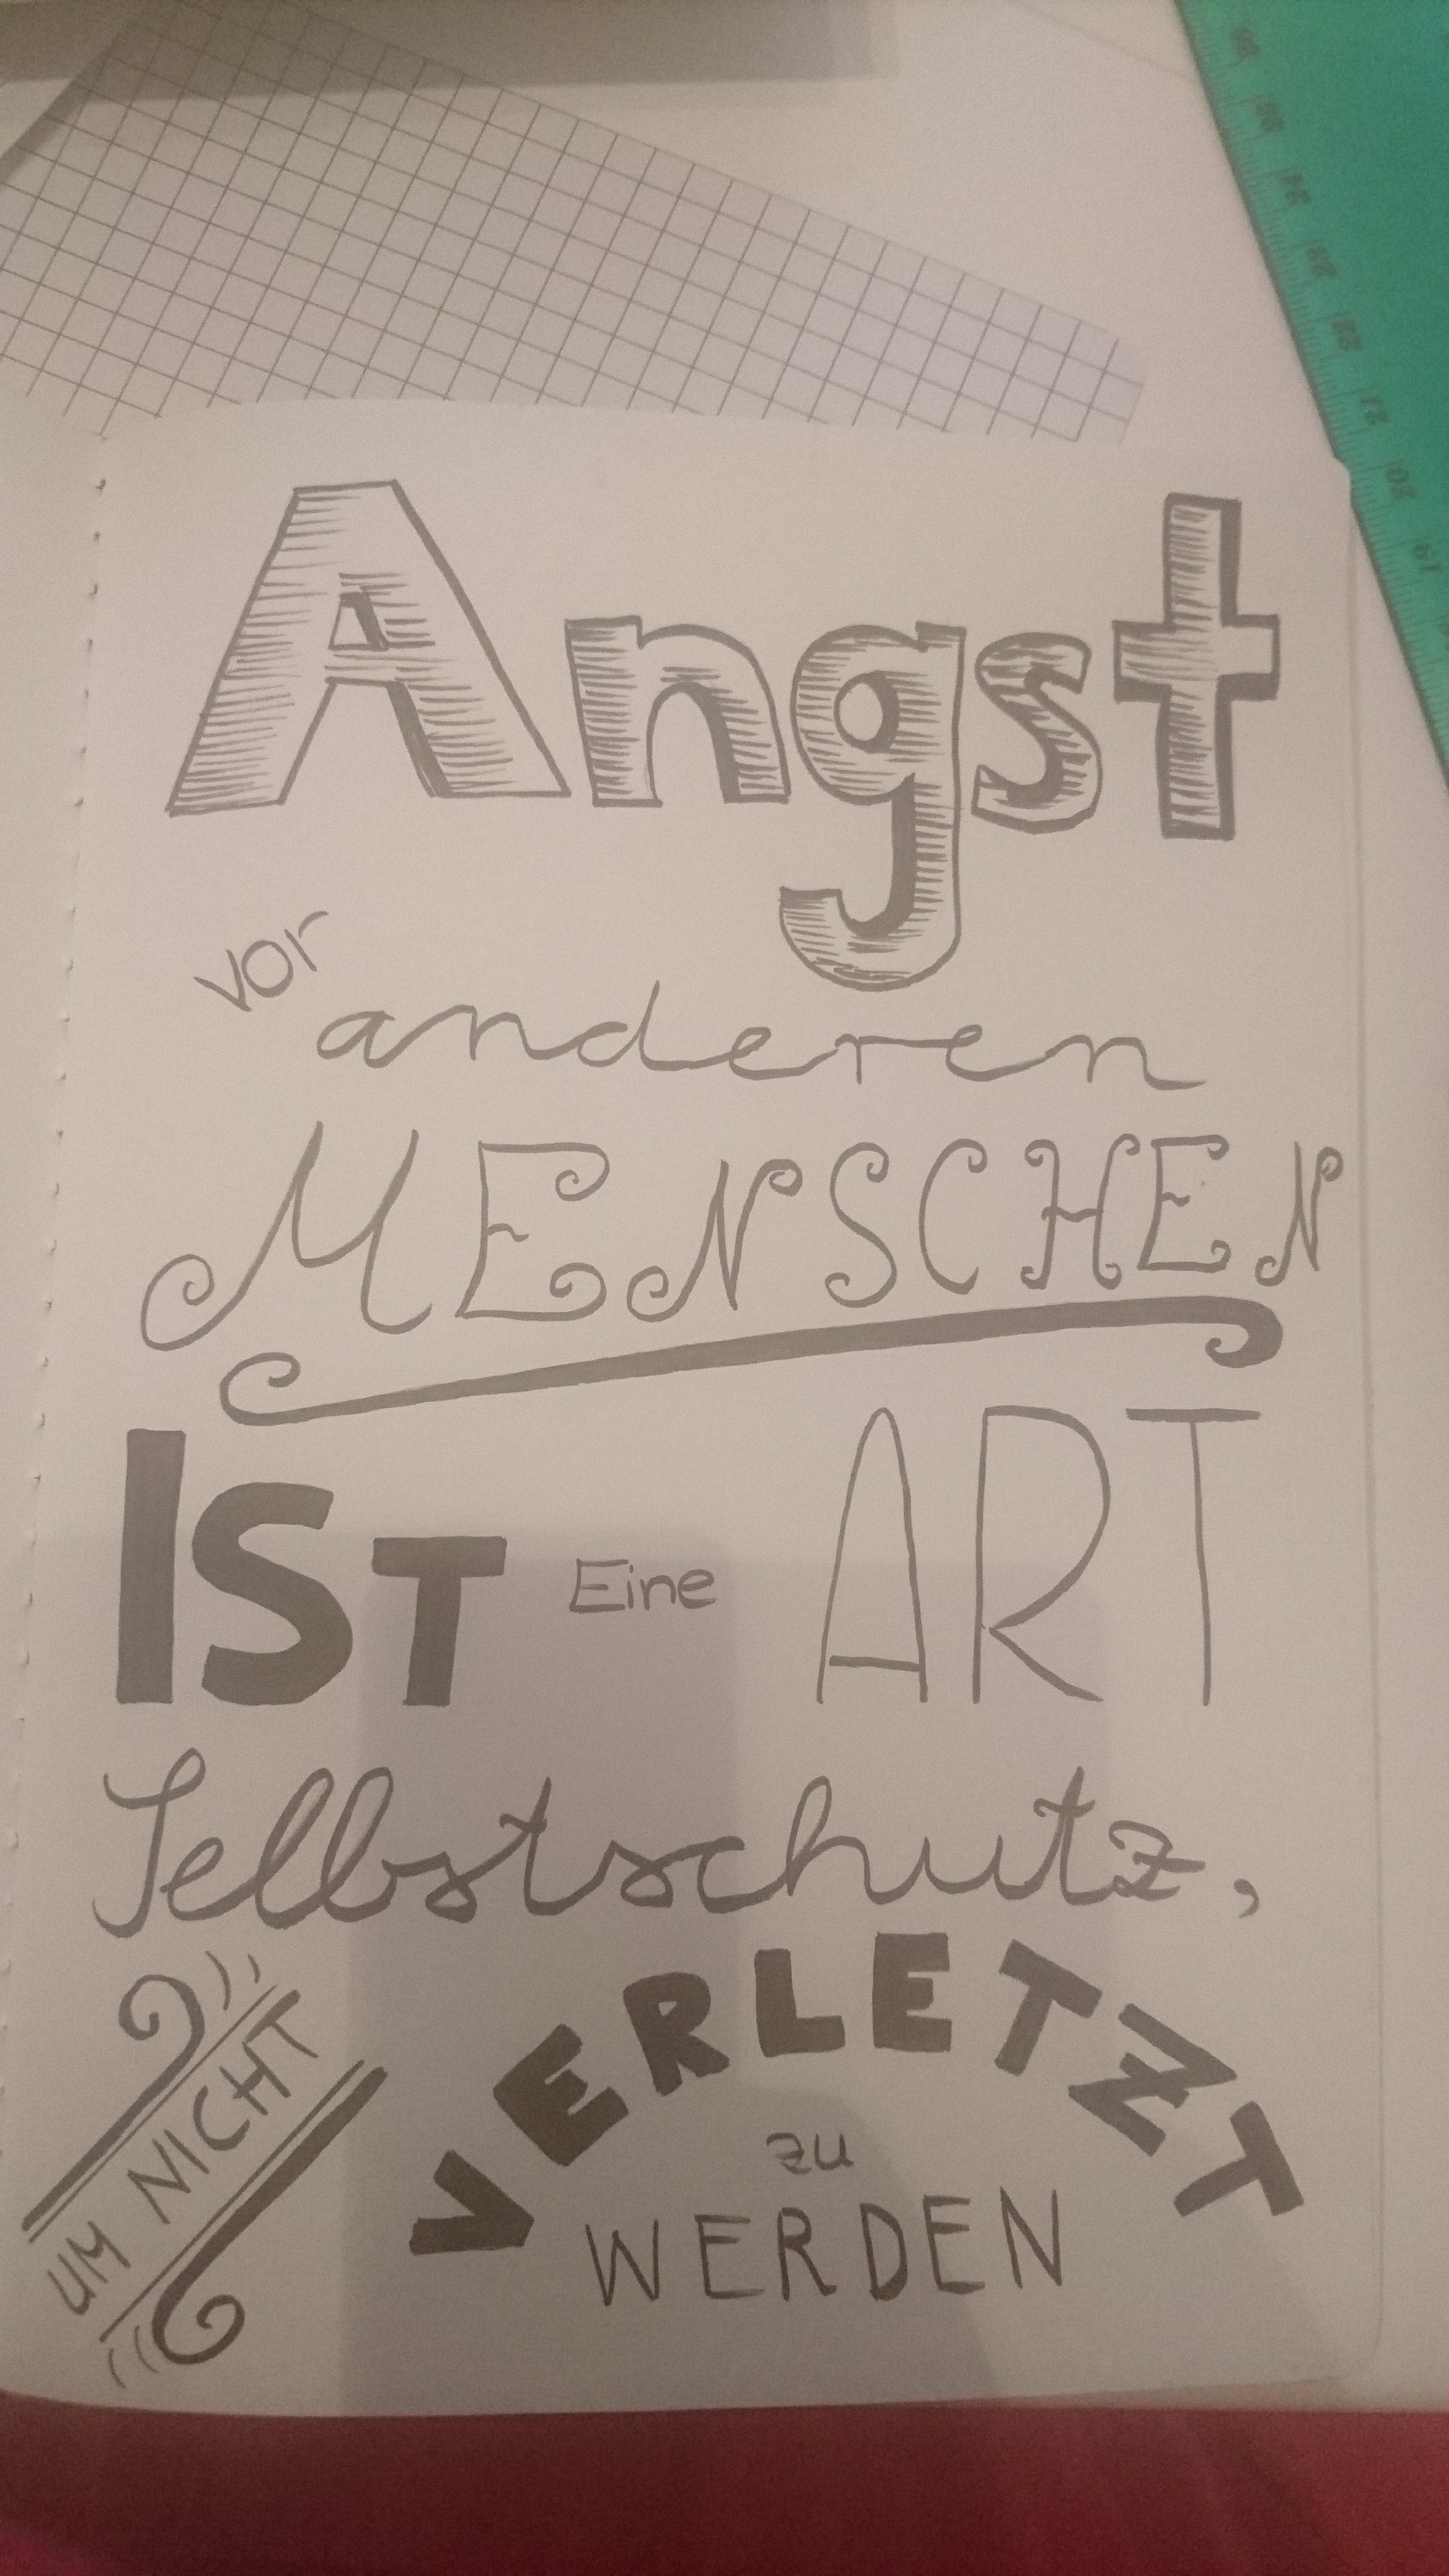 Angst
vor
anderen
MENSCHEN
IST Eine ART
Selbstschutz,
UM NICHT
VERLETZT
zu
WERDEN